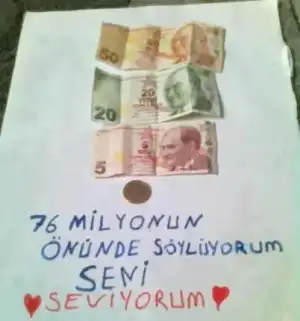 50
20
20
5
76 MİLYONUN
ÖNÜNDE SÖYLÜYORUM
SENİ
SEVİYORUM